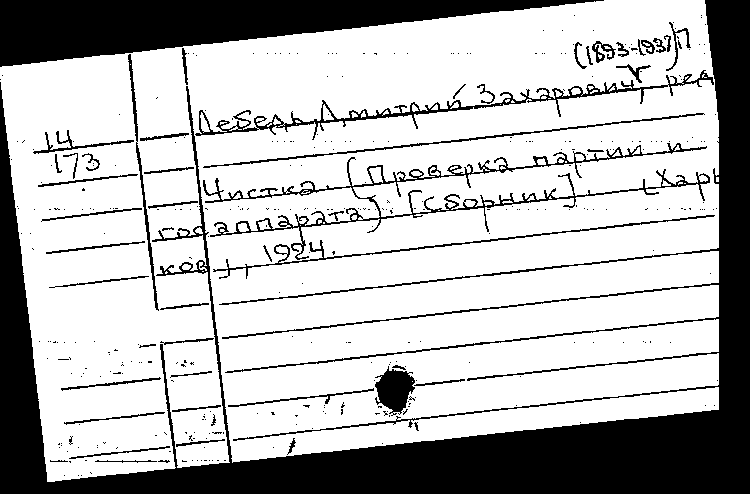 (1893-1937) П
Лебедь, Дмитрий Захарович, ред
14
173
Чистка. (Проверка партии и
госаппарата). [Сборник]. [Харь
ков], 1924.